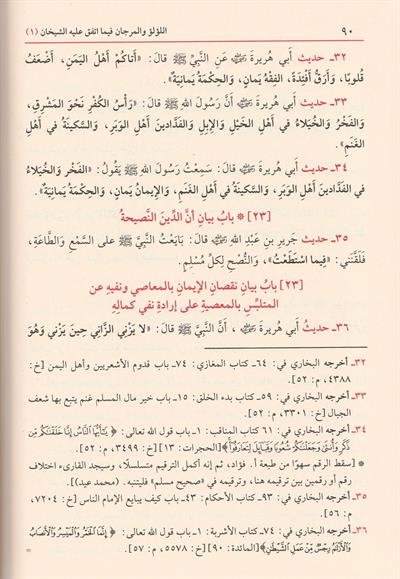 ٩٠ اللؤلؤ والمرجان فيما اتفق عليه الشيخان (١)
٣٢ـ حديث أَبي هُريرةَ ﷺ عَنِ النَّبيِّ ﷺ قالَ: «أَتاكُمْ أَهْلُ اليَمَنِ، أَضْعَفُ
قُلوبًا، وَأَرَقُّ أَفْئِدَةً، الفِقْهُ يَمانٍ، وَالحِكْمَةُ يَمانِيَةٌ».
٣٣ـ حديث أَبي هُريرةَ ﷺ أَنَّ رَسُولَ اللهِ ﷺ قالَ: «رَأْسُ الكُفْرِ نَحْوَ المَشْرِقِ،
وَالفَخْرُ وَالخُيَلاءُ في أَهْلِ الخَيْلِ وَالإِبِلِ وَالفَدَّادينَ أَهْلِ الوَبَرِ، وَالسَّكينَةُ في أَهْلِ
الغَنَمِ».
٣٤ـ حديث أَبي هُريرةَ قالَ: سَمِعْتُ رَسُولَ اللهِ ﷺ يَقُولُ: «الفَخْرُ وَالخُيَلاءُ
في الفَدَّادينَ أَهْلِ الوَبَرِ، وَالسَّكينَةُ في أَهْلِ الغَنَمِ، وَالإِيمانُ يَمانٍ، وَالحِكْمَةُ يَمانِيَةٌ».
[٢٣] * بابُ بيانِ أنَّ الدِّينَ النَّصيحةُ
٣٥ـ حديث جَريرِ بْنِ عَبْدِ اللهِ قالَ: بايَعْتُ النَّبيَّ ﷺ عَلى السَّمْعِ وَالطَّاعَةِ،
فَلَقَّنَني: «فيما اسْتَطَعْتُ»، وَالنُّصْحِ لِكُلِّ مُسْلِمٍ.
[٢٣] بابُ بيانِ نقصانِ الإيمانِ بالمعاصي ونفيهِ عن
المتلبِّسِ بالمعصيةِ على إرادةِ نفي كمالِهِ
٣٦ـ حديثُ أَبي هُريرةَ، أَنَّ النَّبيَّ ﷺ قالَ: «لا يَزْني الزَّاني حينَ يَزْني وَهُوَ
٣٢ـ أخرجه البخاري في: ٦٤ـ كتاب المغازي: ٧٤ـ باب قدوم الأشعريين وأهل اليمن [خ:
٤٣٨٨، م: ٥٢].
٣٣ـ أخرجه البخاري في: ٥٩ـ كتاب بدء الخلق: ١٥ـ باب خير مال المسلم غنم يتبع بها شعف
الجبال [خ: ٣٣٠١، م: ٥٢].
٣٤ـ أخرجه البخاري في: ٦١ كتاب المناقب: ١ـ باب قول الله تعالى: ﴿يَٰٓأَيُّهَا ٱلنَّاسُ إِنَّا خَلَقْنَٰكُم مِّن
ذَكَرٍ وَأُنثَىٰ وَجَعَلْنَٰكُمْ شُعُوبًا وَقَبَآئِلَ لِتَعَارَفُوٓا۟﴾ [الحجرات: ١٣] [خ: ٣٤٩٩، م: ٥٢].
* [سقط الرقم سهوًا من طبعة أ. فؤاد، ثم إنه أكمل الترقيم متسلسلًا، وسيجد القارىء اختلاف
رقم أو رقمين بين ترقيمه هنا، وترقيمه في «صحيح مسلم» فليتنبه. (محمد عيد)].
٣٥ـ أخرجه البخاري في: ٩٣ـ كتاب الأحكام: ٤٣ـ باب كيف يبايع الإمام الناس [خ: ٧٢٠٤،
م: ٥٦].
٣٦ـ أخرجه البخاري في: ٧٤ـ كتاب الأشربة: ١ـ باب قول الله تعالى: ﴿إِنَّمَا ٱلْخَمْرُ وَٱلْمَيْسِرُ وَٱلْأَنصَابُ
وَٱلْأَزْلَٰمُ رِجْسٌ مِّنْ عَمَلِ ٱلشَّيْطَٰنِ﴾ [المائدة: ٩٠] [خ: ٥٥٧٨، م: ٥٧].